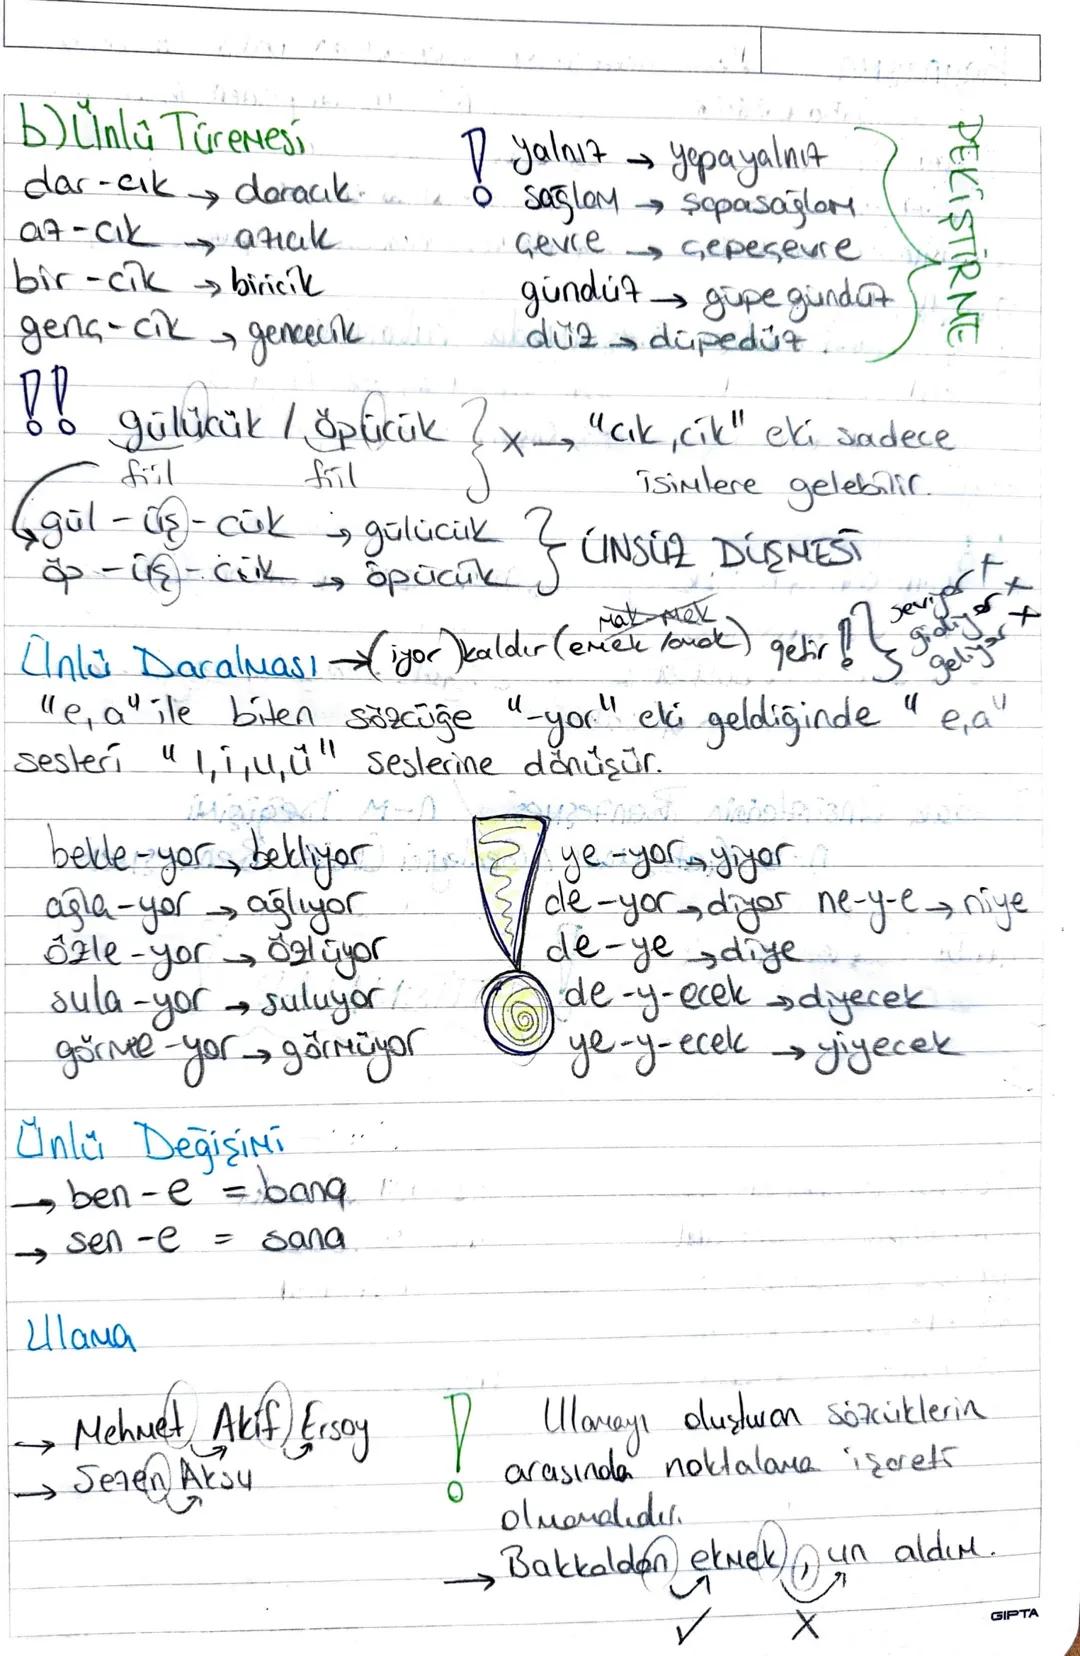 b) Ünlü Türemesi
dar-cık → daracık
az-cık → azıcık
bir-cik → biricik
genç-cik → gencecik
! yalnız → yapayalnız
sağlam → sapasağlam
çevre → çepeçevre
gündüz → güpegündüz
düz → düpedüz
PEKİŞTİRME
!! gülücük / öpücük } x → "cık,cik" eki sadece
fiil fiil isimlere gelebilir.
gül-üş-cük → gülücük } ÜNSÜZ DÜŞMESİ
öp-üş-cük → öpücük
mak mek
Ünlü Daralması → (iyor) kaldır (emek /amak) getir ! { seviyor +
gidiyor x
geliyor +
"e,a" ile biten sözcüğe "-yor" eki geldiğinde "e,a"
sesleri "ı,i,u,ü" seslerine dönüşür.
bekle-yor → bekliyor
ağla-yor → ağlıyor
özle-yor → özlüyor
sula-yor → suluyor
görme-yor → görmüyor
! ye-yor → yiyor
de-yor → diyor ne-y-e → niye
de-ye → diye
de-y-ecek → diyecek
ye-y-ecek → yiyecek
Ünlü Değişimi
→ ben-e = bana
→ sen-e = sana
Ulama
→ Mehmet Akif Ersoy
→ Sezen Aksu
! Ulamayı oluşturan sözcüklerin
arasında noktalama işareti
olmamalıdır.
→ Bakkaldan ekmek, un aldım.
✓ X
GIPTA